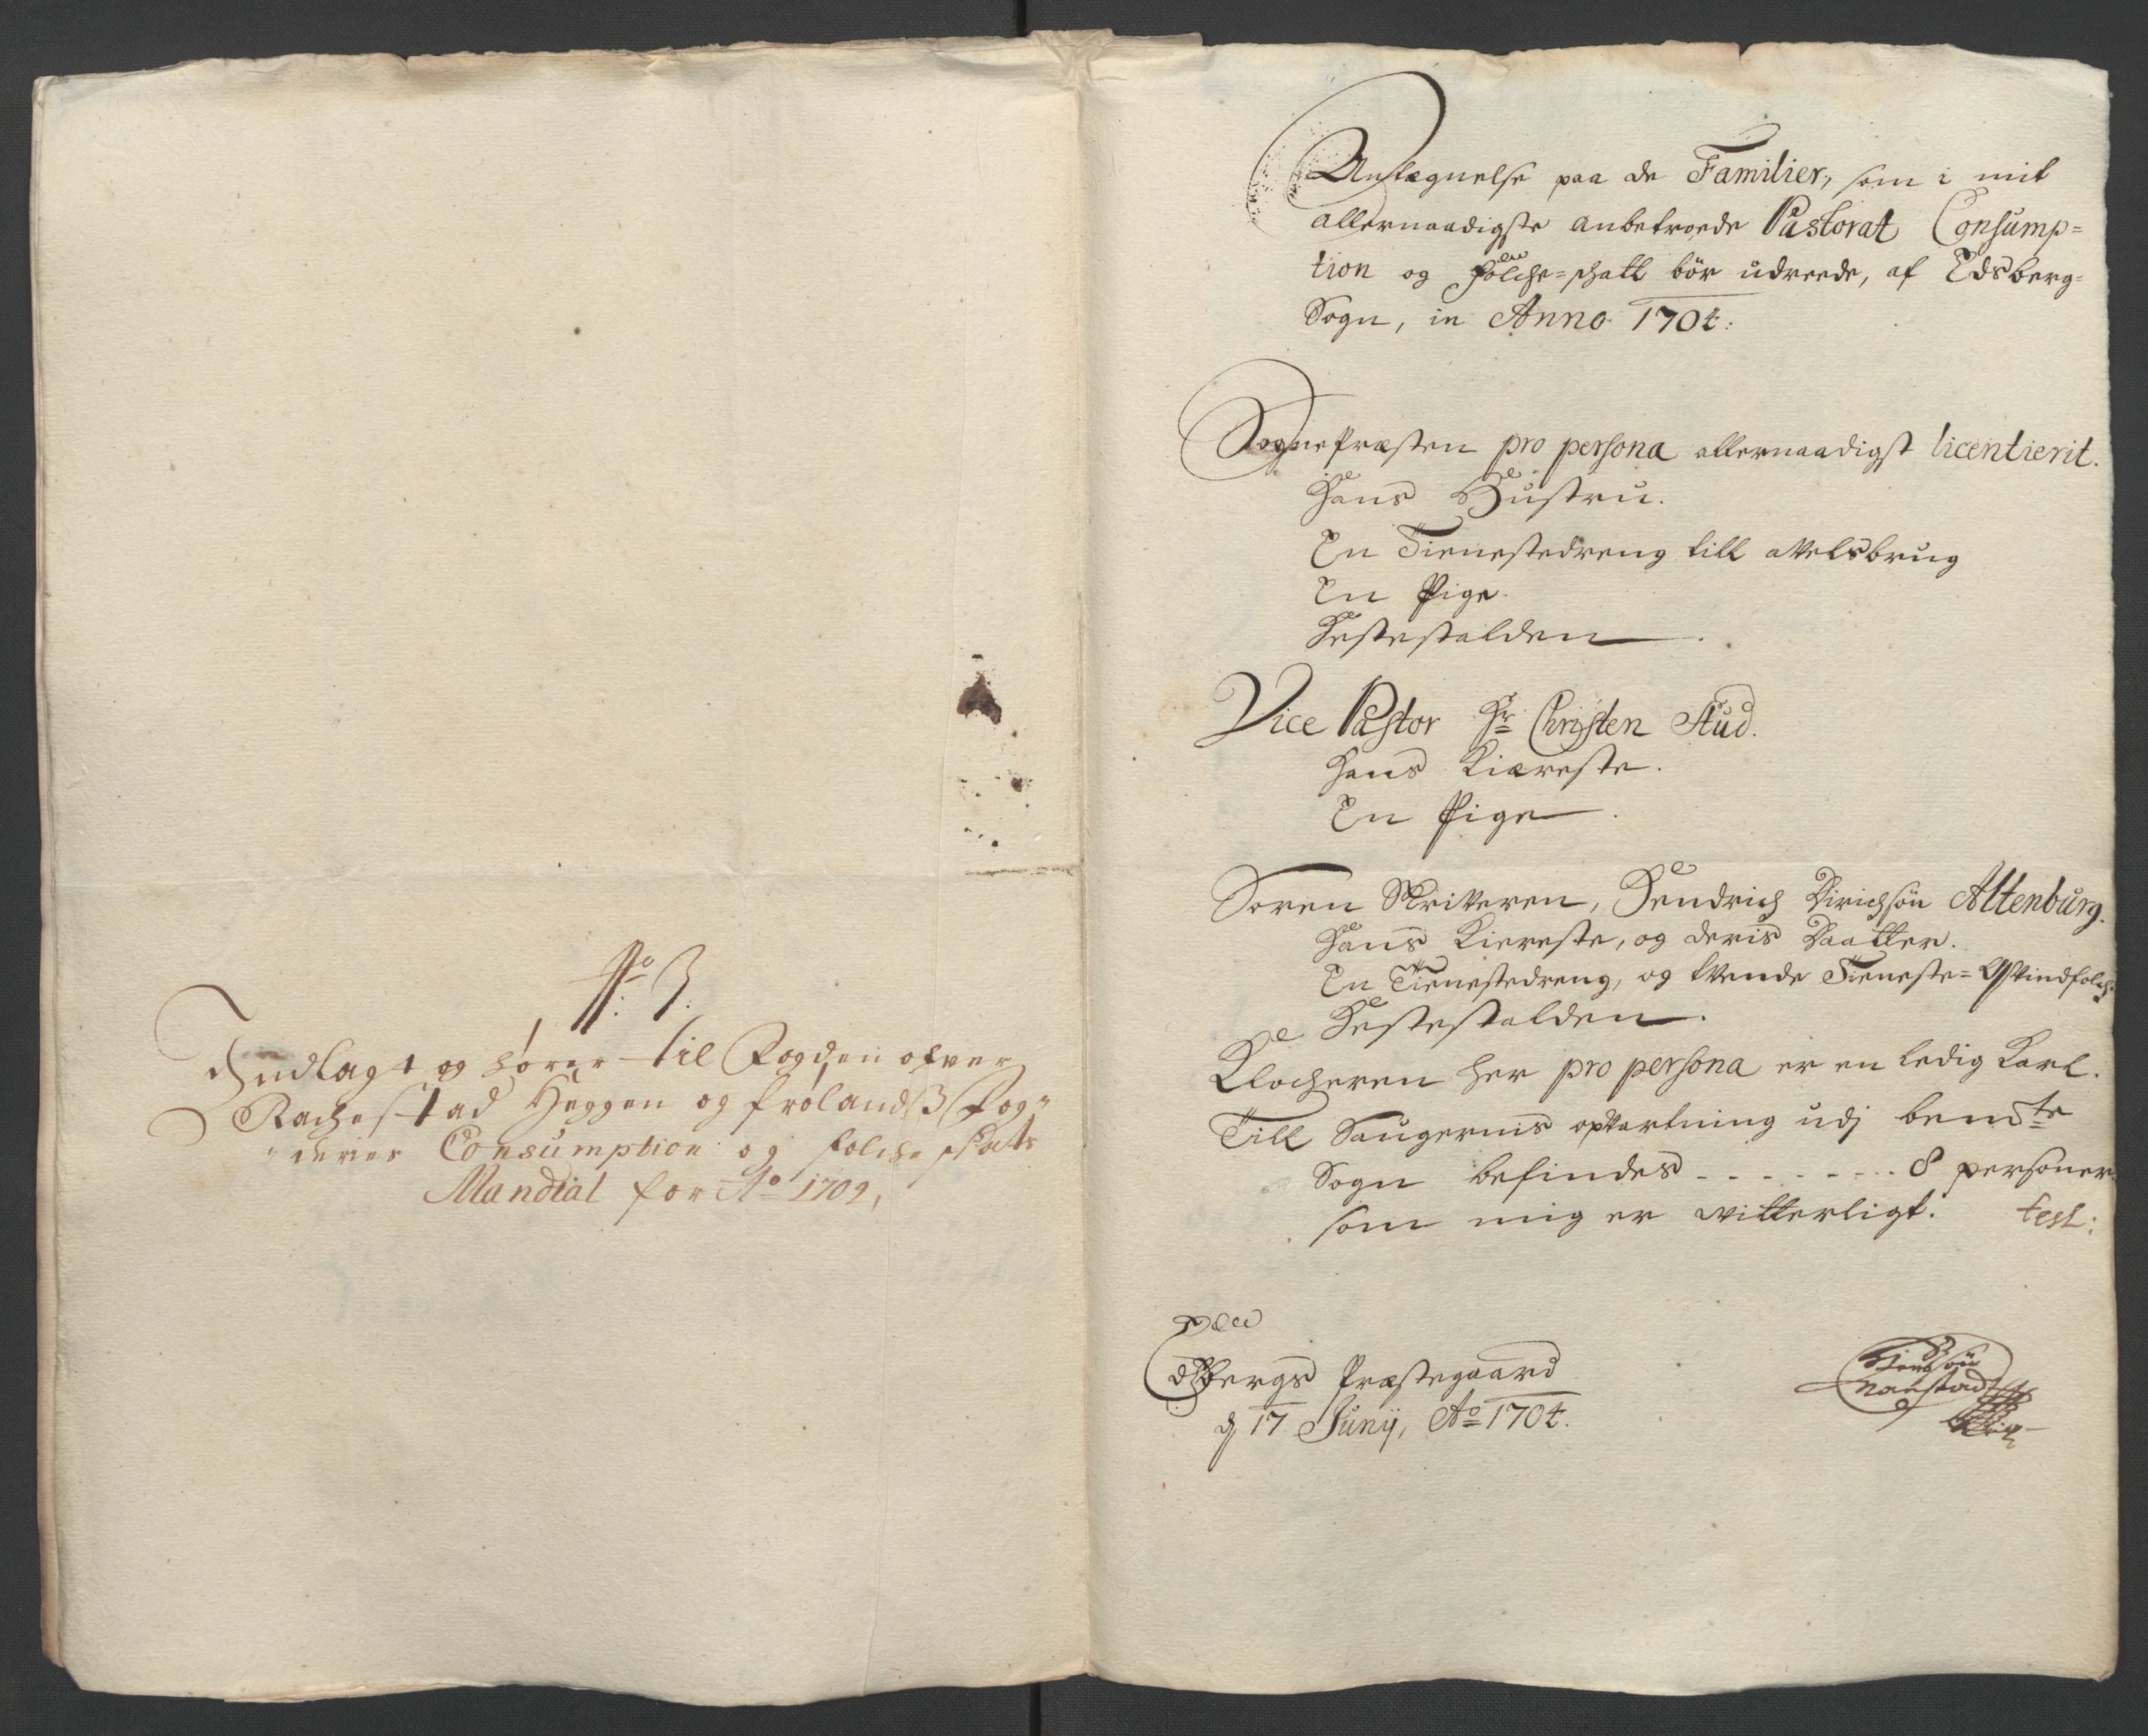 No 3.
Indlagt og hører til Fogden ofver
Rachestad Heggen og frølands Fog„
„deries Consumption og folche skatts
Mandtal for Ao 1704,
Antegnelse paa de Familier, som i mit
allernaadigste anbetroede Pastorat Consump=
tion og Folche=schatt bør udreede, af Edsberg=
Sogn, in Anno 1704:
Sognepræsten pro persona allernaadigst licentierit.
Hans Hustru.
En Tienestedreng till avelsbrug
En Pige.
Hestestalden
Vice Pastor Hr Christen Stud.
Hans Kiæreste.
En Pige.
Soren Skriveren, Hendrich Dirichsøn Altenburg.
Hans Kiereste, og deris Daatter.
En Tienestedreng, og tvende Tieneste=Qvindfolch.
Hestestalden.
Klocheren her pro persona er en ledig Karl.
Till Saugernis opvartning udj bemte
Sogn befindes - - - - - - - 8 personer
som mig er vitterligt. test:
Edsbergs Præstegaard
d 17 Junij, Ao 1704.